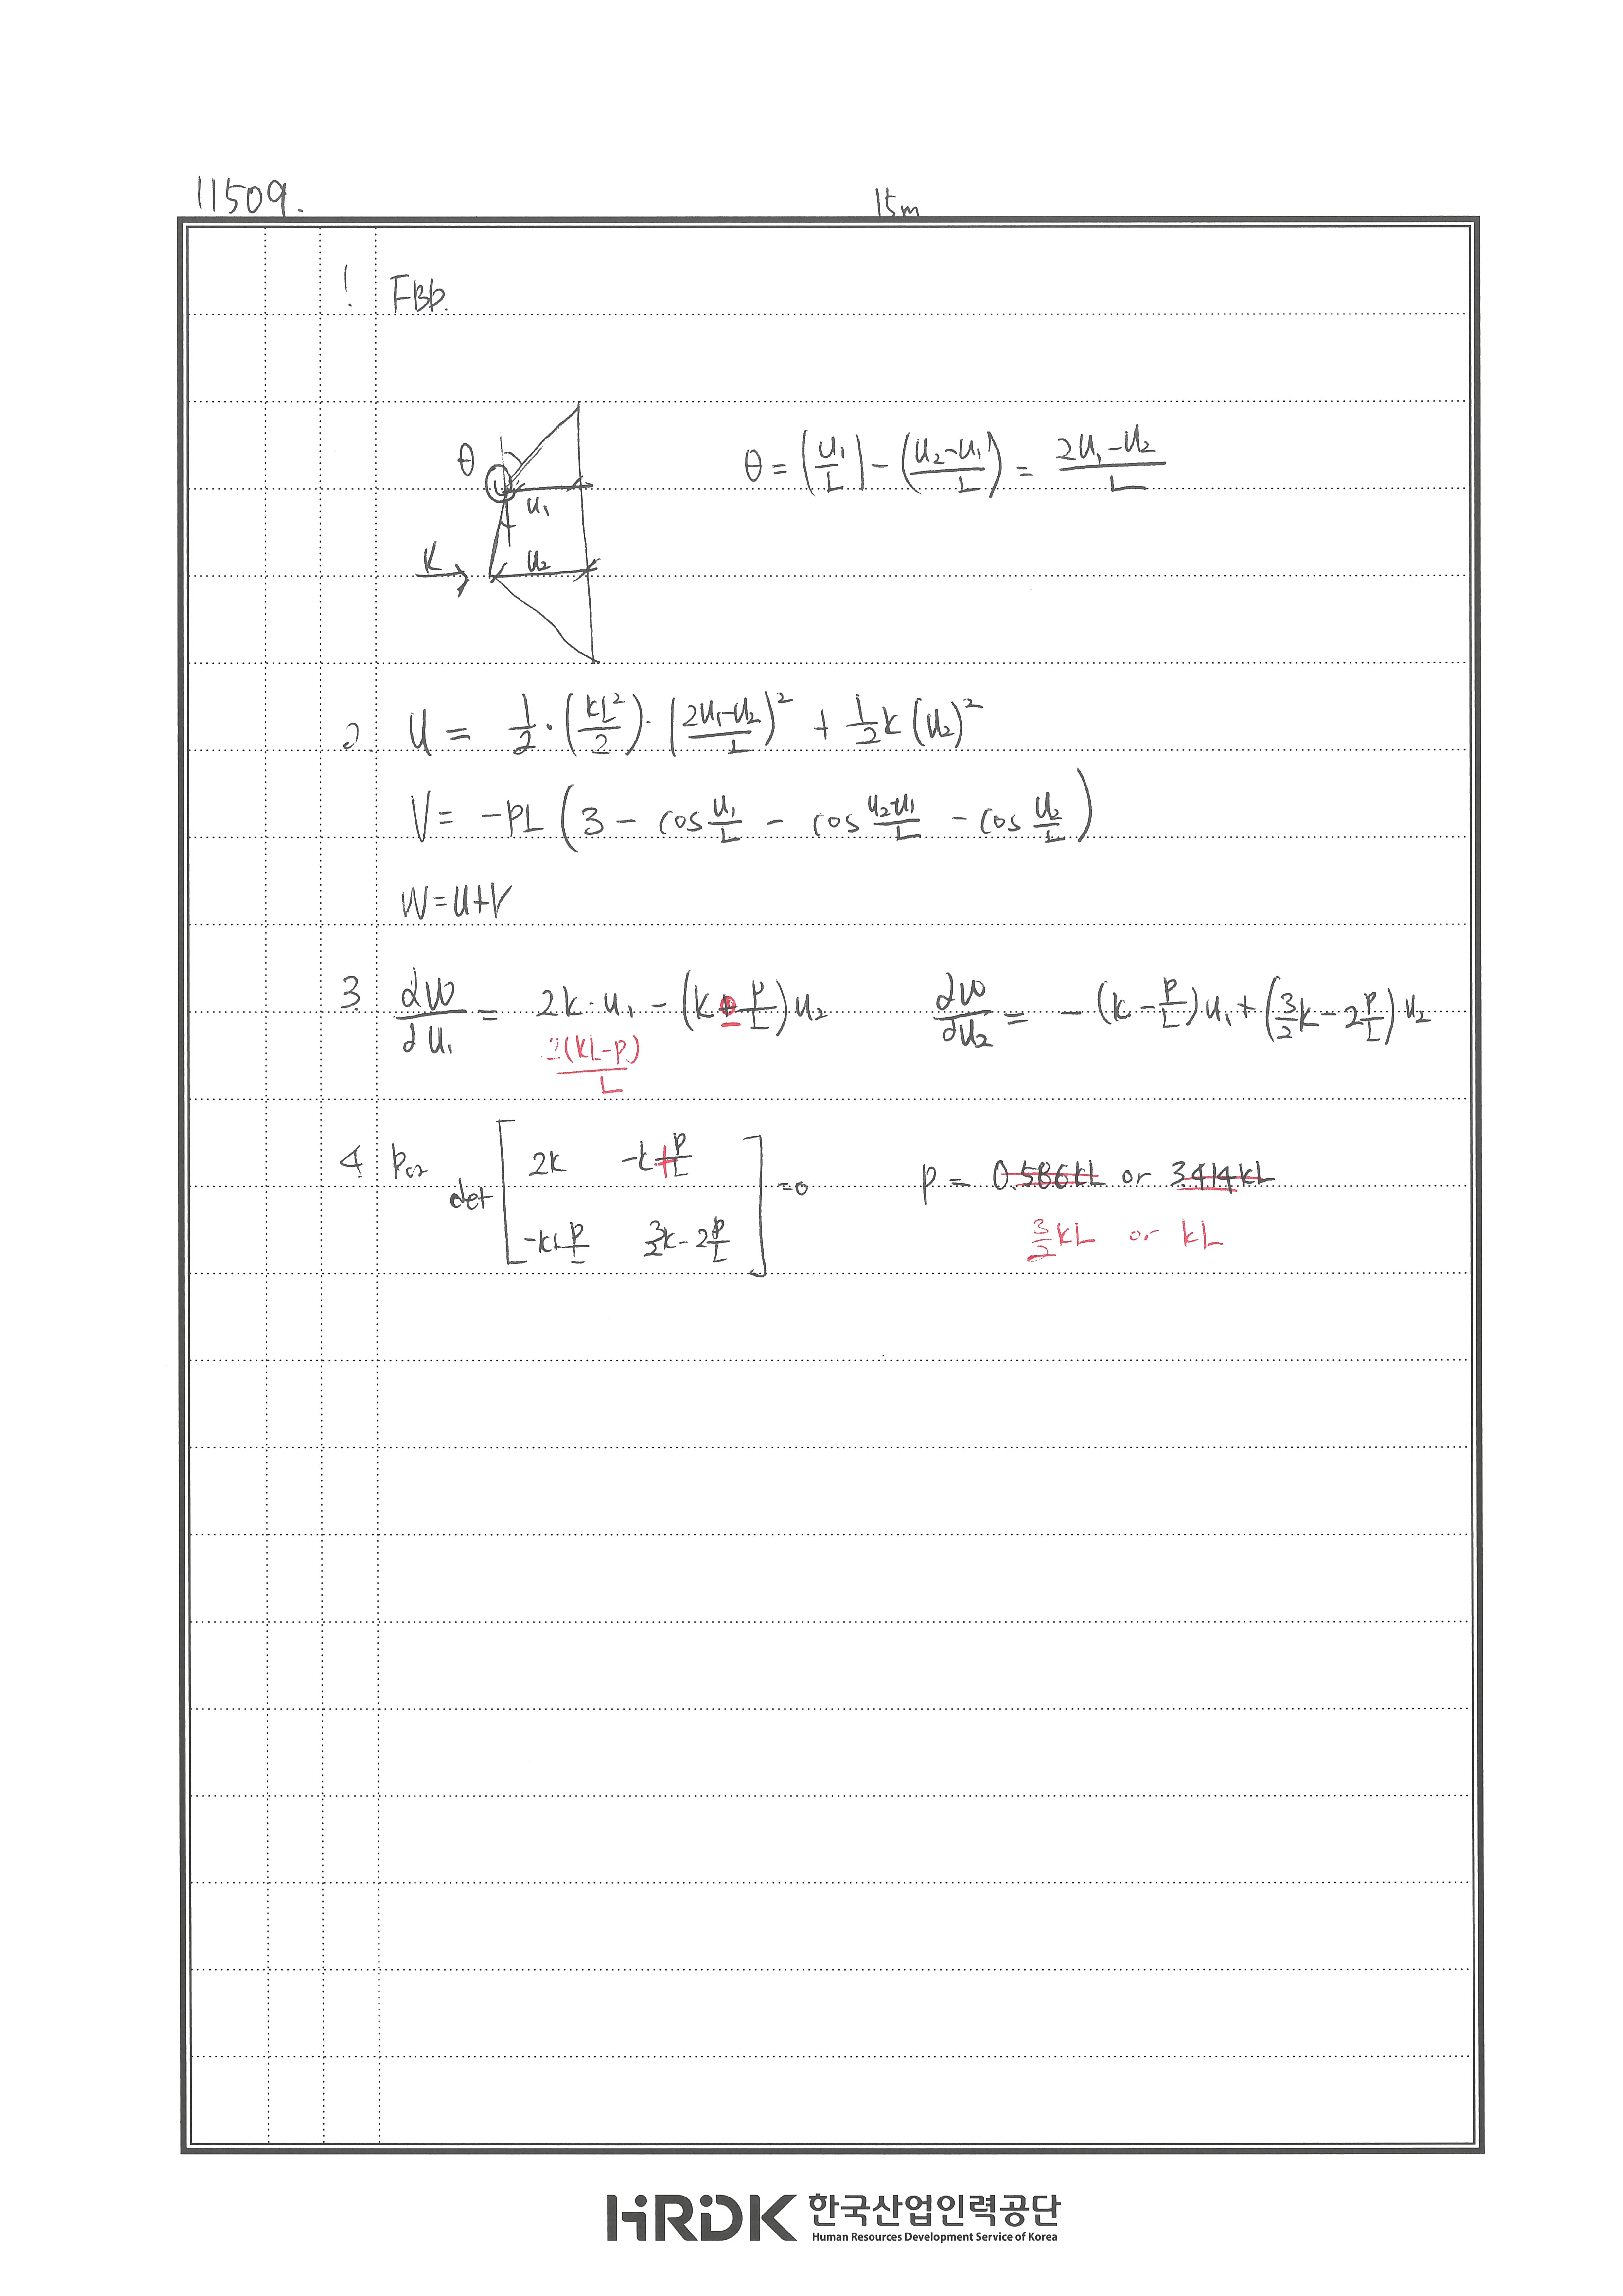 11509.
15m
1. FBD.
θ = (u₁/L) - ((u₂-u₁)/L) = (2u₁-u₂)/L
θ
u₁
K
u₂
2. U = 1/2 · (kL²/2) · ((2u₁-u₂)/L)² + 1/2 k (u₂)²
V = -PL (3 - cos u₁/L - cos (u₂-u₁)/L - cos u₂/L)
W = U+V
3. ∂W/∂u₁ = 2k · u₁ - (k - P/L) u₂    ∂W/∂u₂ = -(k - P/L) u₁ + (3/2 k - 2 P/L) u₂
2(kL-P)/L
4. Pcr det [2k  -k+P/L
-k+P/L  3/2 k - 2 P/L] = 0    P = 0.586kL or 3.414kL
3/2 kL or kL
HRDK 한국산업인력공단
Human Resources Development Service of Korea